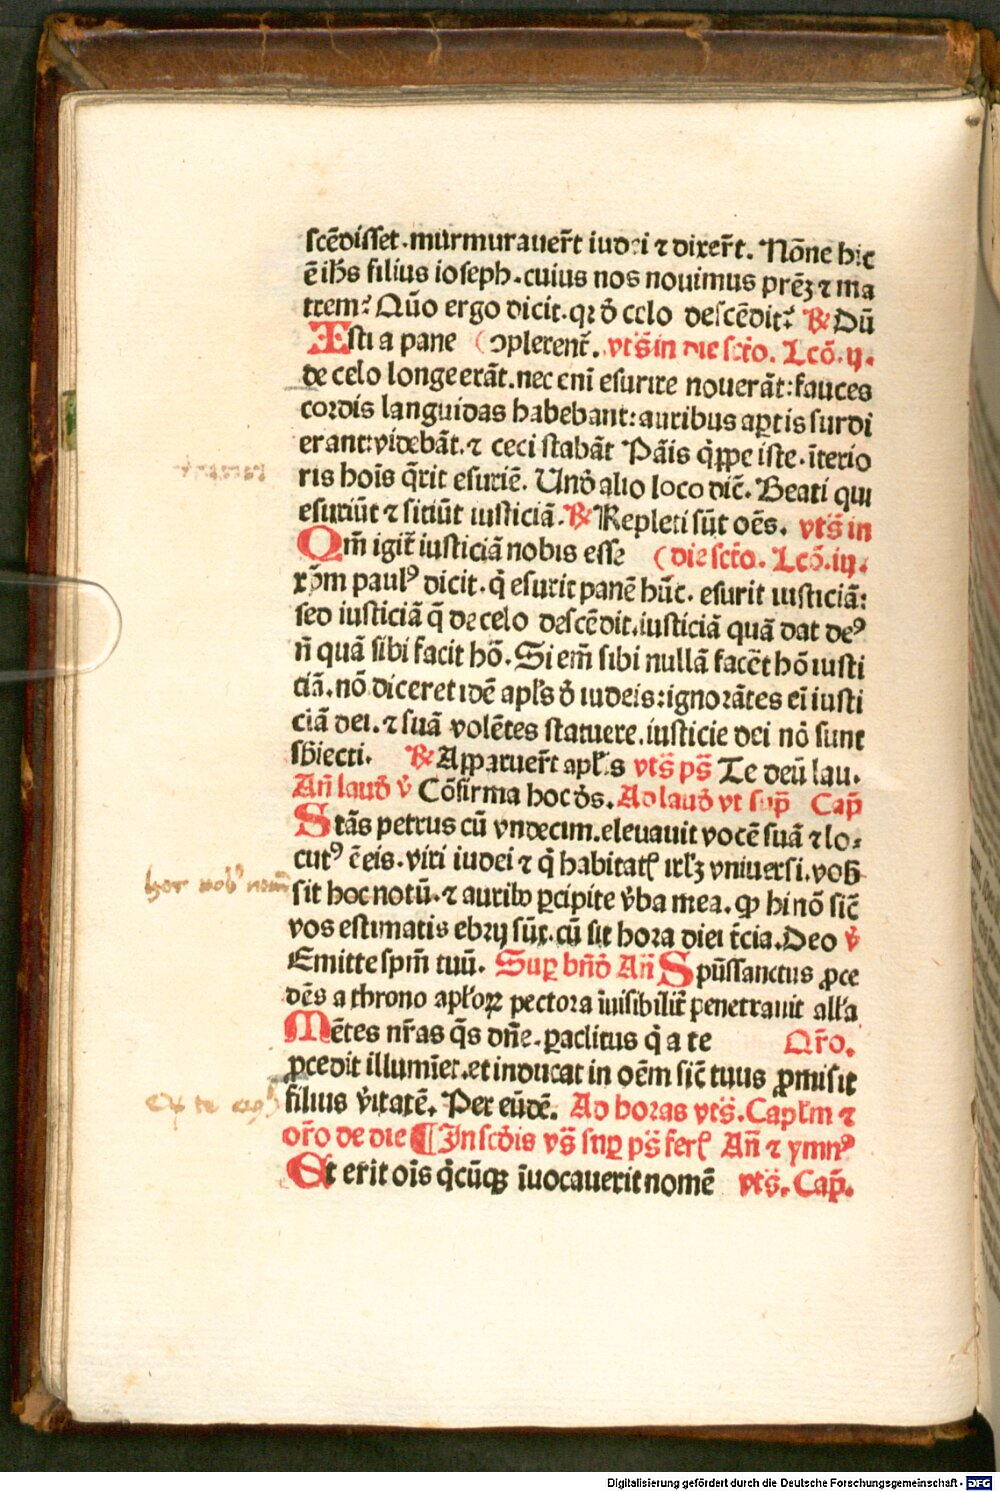 scēdisset.murmurauer̄t iudei ⁊ dixer̄t. Nōne hic
ē ih̄s filius ioseph.cuius nos nouimus prēꝫ ⁊ ma
trem? Quō ergo dicit.qꝛ ð celo descēdit? ℟ Dū
Isti a pane (ꝯplerent̄. vts̄ in die sct̄o. Lcō.ij.
de celo longe erāt.nec enī esurire nouerāt:fauces
cordis languidas habebant:auribus aꝑtis surdi
erant:videbāt.⁊ ceci stabāt Pāis q̄ppe iste.īterio
ris hoīs q̄rit esuriē. Unð alio loco dic̄. Beati qui
esuriūt ⁊ sitiūt iusticiā. ℟ Repleti sūt oēs. vts̄ in
Qm̄ igit̄ iusticiā nobis esse (die sct̄o. Lcō.iij.
xp̄m paulꝰ dicit.q̄ esurit panē hūc. esurit iusticiā:
sed iusticiā q̄ de celo descēdit.iusticiā quā dat deꝰ
n̄ quā sibi facit hō. Si em̄ sibi nullā facēt hō iusti
ciā.nō diceret idē apl̄s ð iudeis:ignorātes eī iusti
ciā dei.⁊ suā volētes statuere.iusticie dei nō sunt
sb̄iecti. ℟ Apparuer̄t apl̄s vts̄ ps̄ Te deū lau.
Añ lauð v̄ Cōfirma hoc ðs. Ad lauð vt sup̄ Cap̄
Stās petrus cū vndecim.eleuauit vocē suā ⁊ lo-
cutꝰ ē eis. viri iudei ⁊ q̄ habitatꝭ irlꝫ vniuersi.vob̄
hoc vob' notū
sit hoc notū.⁊ auribꝰ ꝑcipite v̄ba mea. ꝙ hi nō sic̄
vos estimatis ebrij sūt.cū sit hora diei t̄cia. Deo v̄
Emitte spm̄ tuū. Suꝑ bn̄ð Añ Spūssanctus ꝓce
dēs a throno apl̄oꝝ pectora īuisibilit̄ penetrauit all̄a
Mētes nr̄as q̄s dn̄e.paclitus q̄ a te Or̄o.
ꝓcedit illumīet.et inducat in oēm sic̄ tuus ꝓmisit
filius v̄itatē. Per eūdē. Ad horas vts̄. Capl̄m ⁊
or̄o de die ¶ In scðis vs̄ suꝑ ps̄ ferꝭ Añ ⁊ ymnꝰ
Et erit oīs q̄cūqꝫ īuocauerit nomē vts̄. Cap̄.
Digitalisierung gefördert durch die Deutsche Forschungsgemeinschaft - DFG